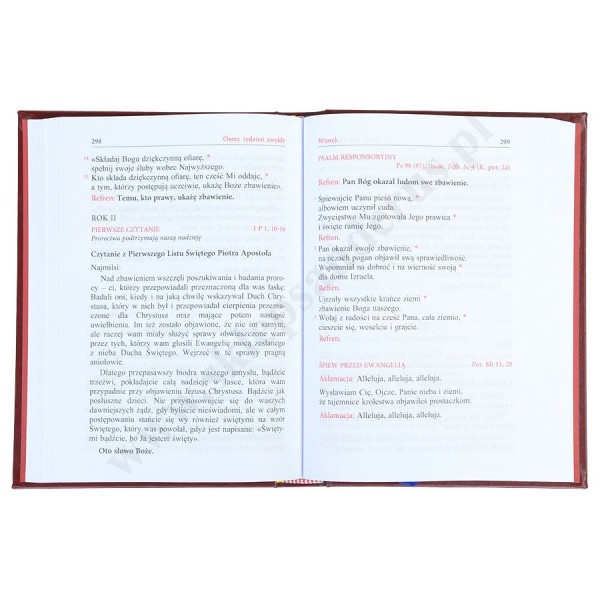 298 Ósmy tydzień zwykły
14 «Składaj Bogu dziękczynną ofiarę, *
spełnij swoje śluby wobec Najwyższego.
23 Kto składa dziękczynną ofiarę, ten cześć Mi oddaje, *
a tym, którzy postępują uczciwie, ukażę Boże zbawienie».
Refren: Temu, kto prawy, ukażę zbawienie.
ROK II
PIERWSZE CZYTANIE 1 P 1, 10-16
Proroctwa podtrzymują naszą nadzieję
Czytanie z Pierwszego Listu Świętego Piotra Apostoła
Najmilsi:
Nad zbawieniem wszczęli poszukiwania i badania proro-
cy – ci, którzy przepowiadali przeznaczoną dla was łaskę.
Badali oni, kiedy i na jaką chwilę wskazywał Duch Chry-
stusa, który w nich był i przepowiadał cierpienia przezna-
czone dla Chrystusa oraz mające potem nastąpić
uwielbienia. Im też zostało objawione, że nie im samym,
ale raczej wam miały służyć sprawy obwieszczone wam
przez tych, którzy wam głosili Ewangelię mocą zesłanego
z nieba Ducha Świętego. Wejrzeć w te sprawy pragną
aniołowie.
Dlatego przepasawszy biodra waszego umysłu, bądźcie
trzeźwi, pokładajcie całą nadzieję w łasce, która wam
przypadnie przy objawieniu Jezusa Chrystusa. Bądźcie jak
posłuszne dzieci. Nie przystosowujcie się do waszych
dawniejszych żądz, gdy byliście nieświadomi, ale w całym
postępowaniu stańcie się wy również świętymi na wzór
Świętego, który was powołał, gdyż jest napisane: «Święty-
mi bądźcie, bo Ja jestem święty».
Oto słowo Boże.
Wtorek 299
PSALM RESPONSORYJNY
Ps 98 (97), 1bcde. 2-3b. 3c-4 (R.: por. 2a)
Refren: Pan Bóg okazał ludom swe zbawienie.
Śpiewajcie Panu pieśń nową, *
albowiem uczynił cuda.
Zwycięstwo Mu zgotowała Jego prawica *
i święte ramię Jego.
Refren.
Pan okazał swoje zbawienie, *
na oczach pogan objawił swą sprawiedliwość.
Wspomniał na dobroć i na wierność swoją *
dla domu Izraela.
Refren.
Ujrzały wszystkie krańce ziemi *
zbawienie Boga naszego.
Wołaj z radości na cześć Pana, cała ziemio, *
cieszcie się, weselcie i grajcie.
Refren.
ŚPIEW PRZED EWANGELIĄ Por. Mt 11, 25
Aklamacja: Alleluja, alleluja, alleluja.
Wysławiam Cię, Ojcze, Panie nieba i ziemi,
że tajemnice królestwa objawiłeś prostaczkom.
Aklamacja: Alleluja, alleluja, alleluja.